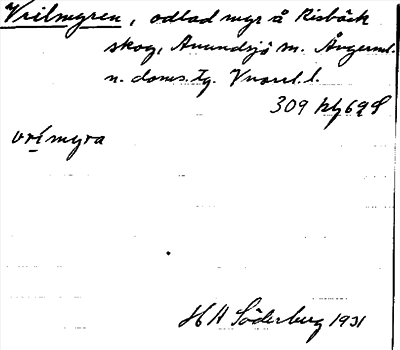 Vrilmyren, odlad myr å Risbäck
skog, Anundsjö sn. Ångerml.
n. doms.tg. Vnorrl.l.
309 Hg 69 S
vrímyra
H A Söderberg 1931